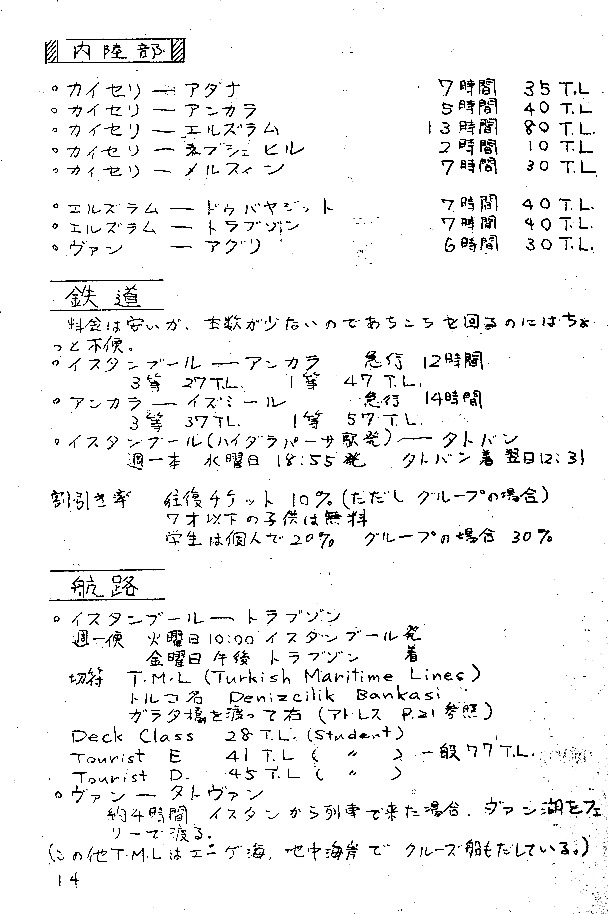 内陸部
○カイセリ ー アダナ 7時間 35 T.L
○カイセリ ー アンカラ 5時間 40 T.L.
○カイセリ ー エルズラム 13時間 80 T.L.
○カイセリ ー ネブシェヒル 2時間 10 T.L
○カイセリ ー メルスィン 7時間 30 T.L
○エルズラム ー ドゥバヤジット 7時間 40 T.L.
○エルズラム ー トラブゾン 7時間 40 T.L.
○ヴァン ー アグリ 6時間 30 T.L.
鉄道
料金は安いが、本数が少ないのであちこちを回るのにはちょ
っと不便。
○イスタンブール ー アンカラ 急行 12時間
3等 27T.L. 1等 47 T.L.
○アンカラ ー イズミール 急行 14時間
3等 37T.L. 1等 57T.L.
○イスタンブール(ハイダラパーサ駅発) ー タトバン
週一本 水曜日 18:55発 タトバン着 翌日12:31
割引き率 往復チケット 10%(ただし グループの場合)
7才以下の子供は無料
学生は個人で20% グループの場合 30%
航路
○イスタンブール ー トラブゾン
週一便 火曜日10:00 イスタンブール発
金曜日午後 トラブゾン 着
切符 T.M.L (Turkish Maritime Lines)
トルコ名 Denizcilik Bankasi
ガラタ橋を渡って右 (アドレス P.21参照)
Deck Class 28T.L.(Student)
Tourist E 41T.L ( 〃 ) 一般77T.L.
Tourist D. 45T.L ( 〃 )
○ヴァン ー タトヴァン
約4時間 イスタンから列車で来た場合、ヴァン湖をフェ
リーで渡る。
(この他T.M.Lはエーゲ海、地中海岸で クルーズ船もだしている。)
14